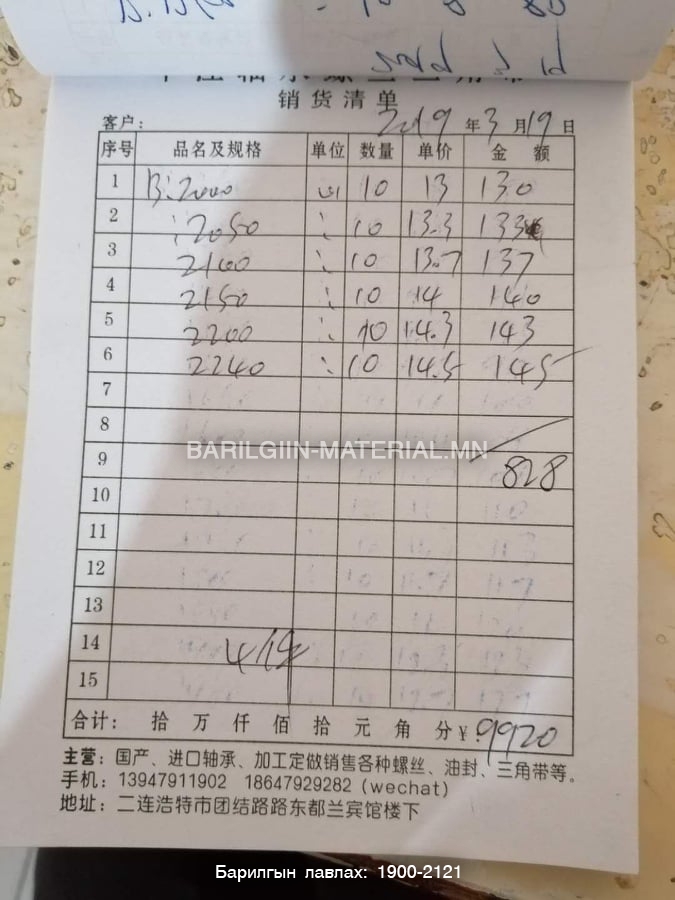 销货清单
客户: 2019 年 3 月 19 日
序号 品名及规格 单位 数量 单价 金额
1 B:2000 10 13 130
2 2050 10 13.3 133
3 2100 10 13.7 137
4 2150 10 14 140
5 2200 10 14.3 143
6 2240 10 14.5 145
7
8
BARILGIIN-MATERIAL.MN
9 828
10
11
12
13
14
15
合计: 拾 万 仟 佰 拾 元 角 分 ¥: 9920
主营: 国产、进口轴承、加工定做销售各种螺丝、油封、三角带等。
手机: 13947911902 18647929282 (wechat)
地址: 二连浩特市团结路路东都兰宾馆楼下
Барилгын лавлах: 1900-2121